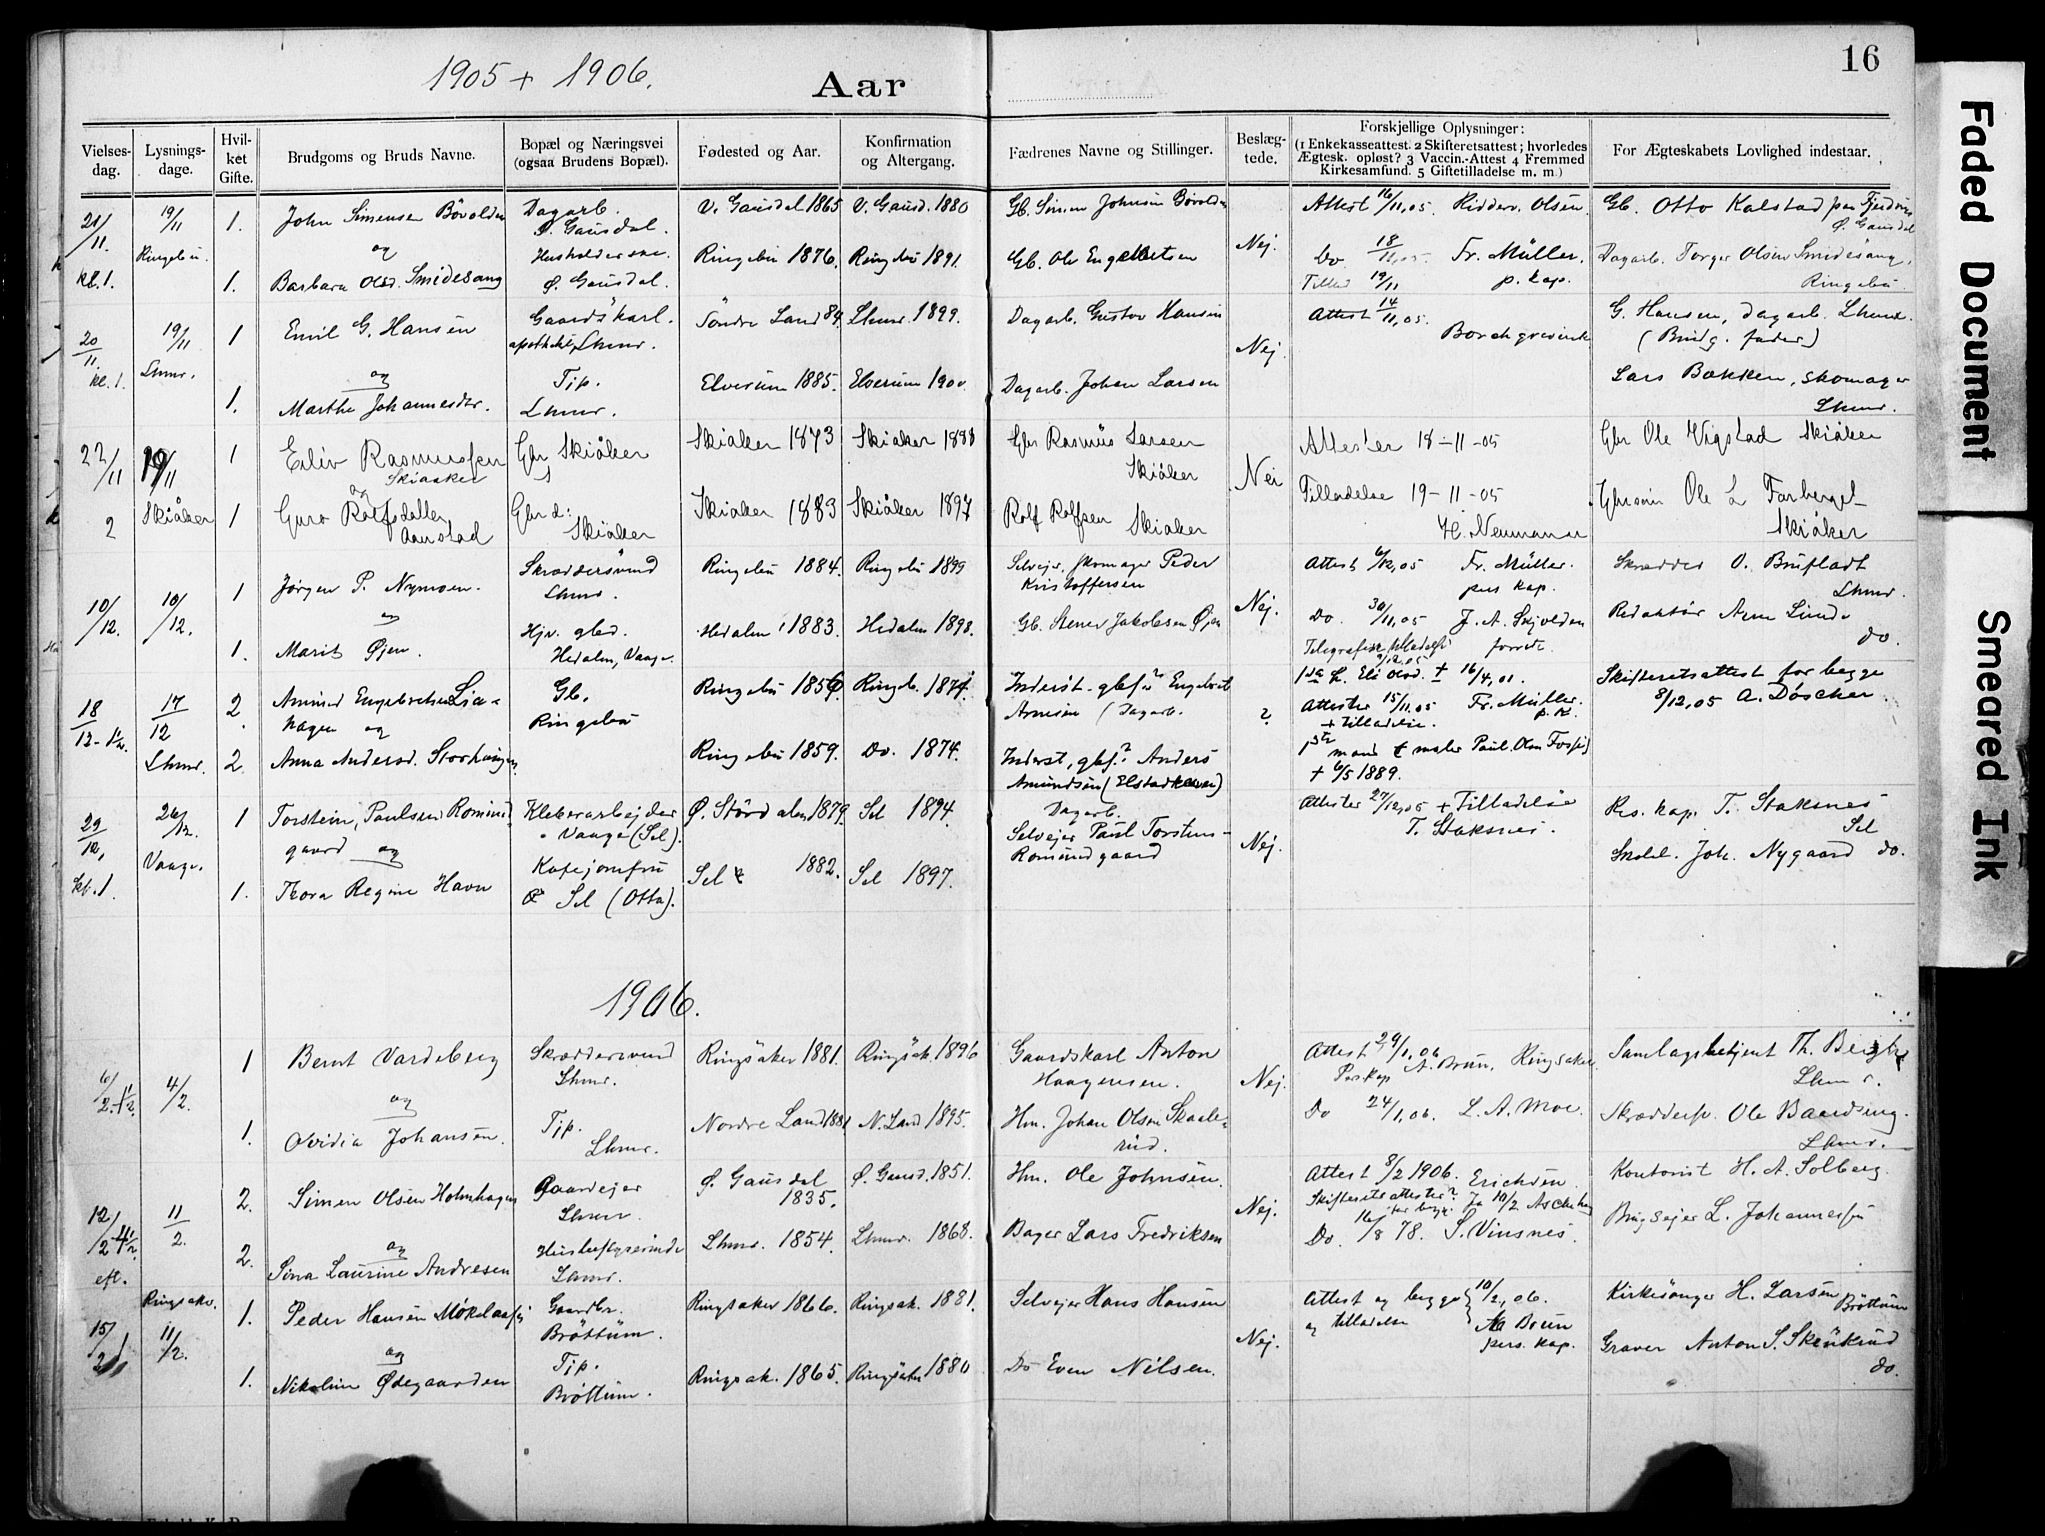 16
1905 + 1906.
Aar
Vielses-
dag.
Lysnings-
dage.
Hvil-
ket
Gifte.
Brudgoms og Bruds Navne.
Bopæl og Næringsvei
(ogsaa Brudens Bopæl).
Fødested og Aar.
Konfirmation
og Altergang.
Fædrenes Navne og Stillinger.
Beslæg-
tede.
Forskjellige Oplysninger:
(1 Enkekasseattest. 2 Skifteretsattest; hvorledes
Ægtesk. opløst? 3 Vaccin.-Attest 4 Fremmed
Kirkesamfund. 5 Giftetilladelse m. m.)
For Ægteskabets Lovlighed indestaar.
21/11. 19/11 1. John Simensen Bövolden Dagarb. V. Gausdal 1865 V. Gausd. 1880 Gb. Simen Johnsen Bövolden Attest 16/11,05. Ridderv. Olsen. Gb. Otto Kalstad
Ringebu. og Ø. Gausdal. Nej. Ø. Gausdal
Husholderske. Ringebu 1876. Ringebu 1891. Gb. Ole Engebretsen Do 18/11,05. Fr. Müller. Dagarb. Torger Olsen Smidesang,
kl. 1. 1. Barbara Olsd. Smidesang Ø. Gausdal. Tillad 19/11 p. kap. Ringebu.
20/11. 19/11 1 Emil G. Hansen Gaardskarl. Söndre Land 84. Lhmr. 1899. Dagarb. Gustav Hansen Attest 14/11,05. G. Hansen, Dagarb. Lhmr.
kl. 1. Lhmr. apotheket, Lhmr. Nej. Borchgrevink (Brudg. fader)
og Tip. Elverum 1885. Elverum 1900. Dagarb. Johan Larsen Lars Bakken, skomager
1. Marthe Johannesdtr. Lhmr. Lhmr.
22/11 19/11 1 Eiliv Rasmussen Gbr Skiåker Skiaker 1873 Skiaker 1888 Gbr Rasmus Larsen Attester 18-11-05 Gbr Ole Vigstad Skiåker
Skiaaker Skiåker Nei
og Tilladelse 19-11-05
2 Skiåker 1 Guro Rolfsdatter Gbr d: Skiaker 1883 Skiåker 1897 Rolf Rolfsen Gbrsøn Ole L Forberget
Aanstad Skiåker Skiaker H. Neumann Skiåker
10/12. 10/12. 1 Jørgen P. Nymoen. Skræddersvend Ringebu 1884. Ringebu 1899 Selvejer, skomager Peder Attest 6/12,05 Fr. Müller. Skrædder O. Brufladt
Lhmr. Kristoffersen pers kap. Lhmr.
og Nej. Do. 30/11,05 J. A. Skjolden Redaktör Arne Linde
1. Marit Øjen. Hjv. gbed. Hedalen, 1883. Hedalen 1898. Gb. Stener Jakobsen Øjen Telegrafisk tilladelse do.
Hedalen, Vaage. 9/12,05
18/12- 17/12 2. Amund Engebretsen Lia- Gb. Ringebu 1856. Ringeb. 1871. Inderst. Engebret 16/4,01. Skifteretsattest for begge
hagen og Ringebu Arnesen (Dagarb. ? Attester 15/11.05 Fr. Müller. 8/12,05 A. Döscher.
+ tilladelse. p. k.
Lhmr. 2. Anna Andersd. Storhaugen Ringebu 1859. Do. 1874. Inderst, gbf.? Anders mand maler Paul Olsen
Amundsen Dagarb. + 6/5 1889.
29/12, 26/12. 1 Torstein Paulsen Romund- Kleberarbejder Ø. Stördalen 1879. Sel 1894. Selvejer Paul Torstens- Attester 27/12,05 + Tilladelse Res. kap. T. Staksnes
gaard og Vaage (Sel). Romundgaard Nej. T. Staksnes. Sel
Vaage. Kafejomfru
kl. 1. 1. Thora Regine Havn Sel (Otta). Sel 1882. Sel 1897. Joh. Nygaard do.
1906.
6/2- 4/2. 1 Bernt Vardeberg Skræddersvend Ringsaker 1881. Ringsak. 1896 Gaardskarl Anton Attest 29/1,06 A. Brun, Ringsaker. Samlagsbetjent Th.
Lhmr. Haagensen. Nej. Pers kap Lhmr.
og Tip. Nordre Land 1881 N. Land 1895. Hm. Johan Olsen Skaale- Do 24/1,06. L. A. Moe. Ole Baardseng.
1. Ovidia Johansen. Lhmr. rud. Lhmr.
12/2 11/2. 2. Simen Olsen Holmhagen Gaardejer Ø. Gausdal Ø. Gausd. 1851. Hm. Ole Johnsen. Attest 8/2 1906. Erichsen. Kontorist H. A. Solberg.
Lhmr. 1835. Nej. Skifteretsattester? Ja 10/2
og Husbestyrerinde for begge
eft. 2. Sina Laurine Andresen Lhmr. Lhmr. 1854. Lhmr. 1868. Bager Lars Fredriksen Do. 16/8 78. S. Vinsnes. L. Johannessen
15/2 Ringsaker. 1. Peder Hansen Gaardbr. Ringsaker 1866. Ringsak. 1881. Selvejer Hans Hansen Attest og begge 10/2,06. Kirkesanger H. Larsen Bröttum
11/2. Bröttum. Nej. og tilladelse A Brun
og Tip. pers. kap. Graver Anton S. Skenkrud
1. Nikoline Ødegaarden Bröttum. Ringsak. 1865. Ringsaker 1880 Do Even Nilsen. do.
Faded Document
Smeared Ink